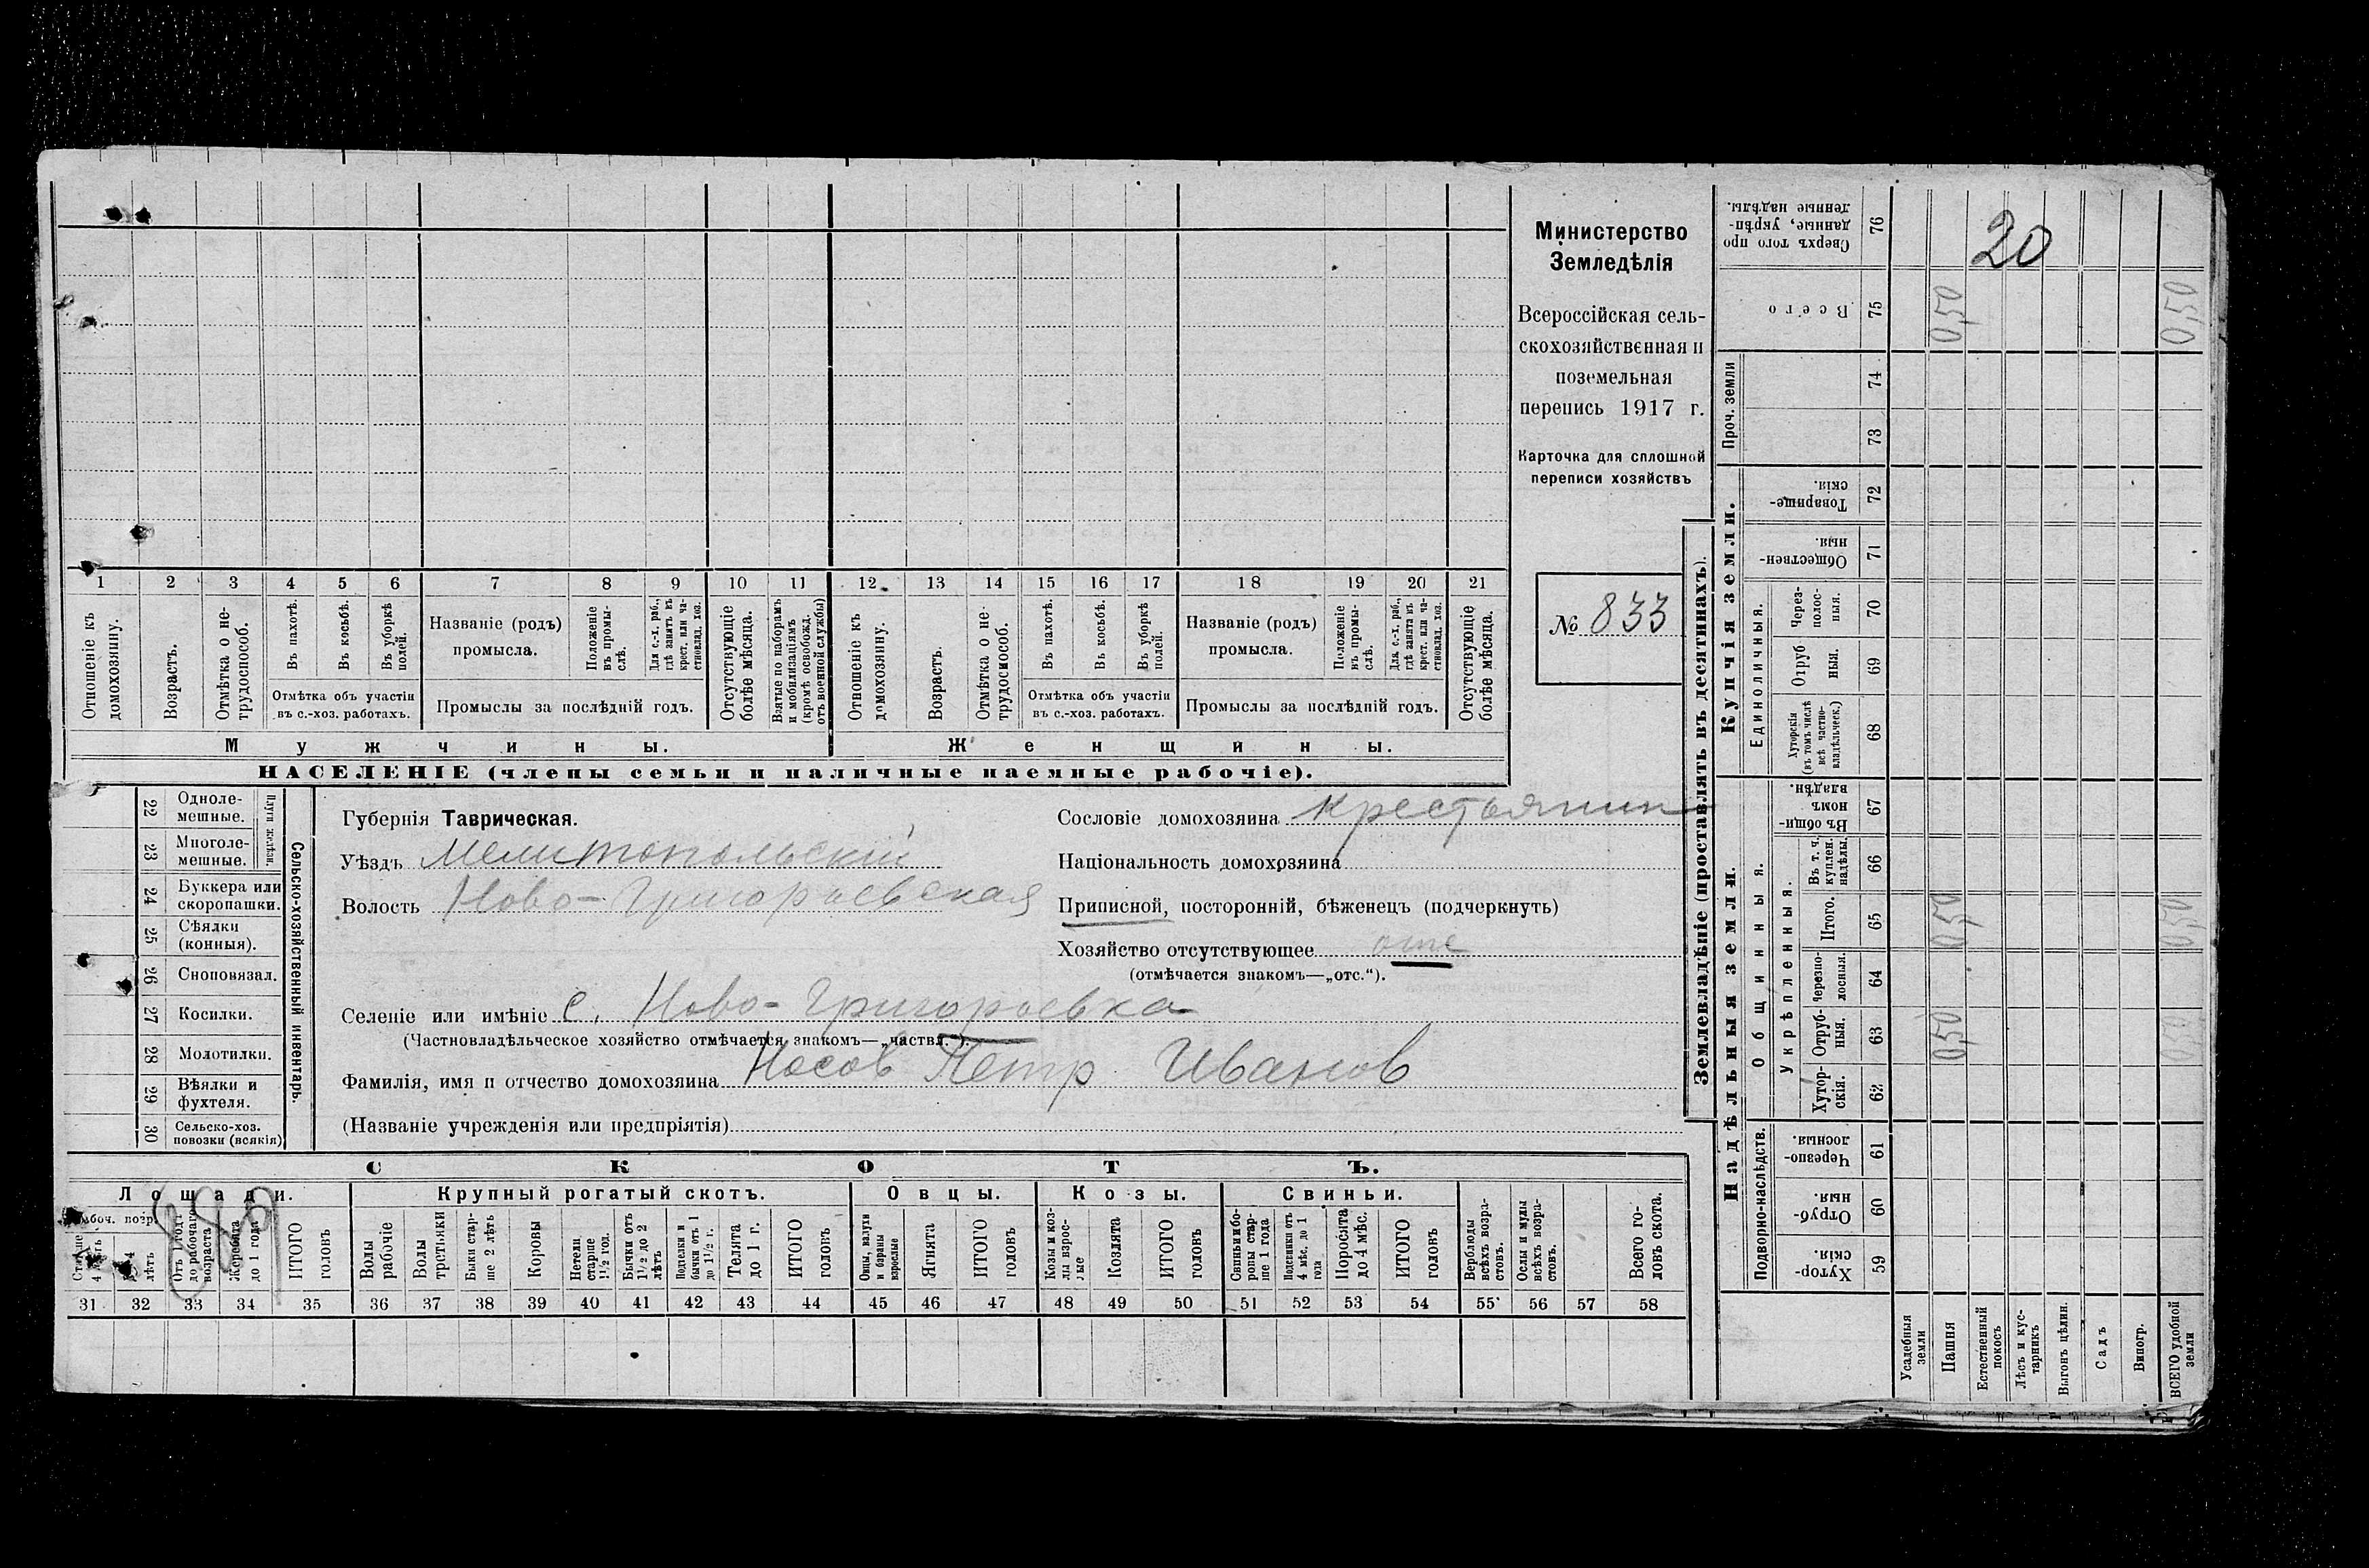 Министерство
Земледѣлія
Всероссійская сель-
скохозяйственная и
поземельная
перепись 1917 г.
Карточка для сплошной
переписи хозяйствъ
№ 833
1 2 3 4 5 6 7 8 9 10 11 12 13 14 15 16 17 18 19 20 21
Отношеніе къ домохозяину.
Возрастъ.
Отмѣтка о не-трудоспособ.
Въ пахотѣ.
Въ косьбѣ.
Въ уборкѣ полей.
Отмѣтка объ участіи
въ с.-хоз. работахъ.
Названіе (родъ)
промысла.
Положеніе въ промы-слѣ.
Для с.-х. раб., гдѣ занятъ въ крест. или ча-стновлад. хоз.
Промыслы за послѣдній годъ.
Отсутствующіе болѣе мѣсяца.
Взятые по наборамъ и мобилизаціямъ (кромѣ освобожд. отъ военной службы)
Отношеніе къ домохозяину.
Возрастъ.
Отмѣтка о не-трудоспособ.
Въ пахотѣ.
Въ косьбѣ.
Въ уборкѣ полей.
Отмѣтка объ участіи
въ с.-хоз. работахъ.
Названіе (родъ)
промысла.
Положеніе въ промы-слѣ.
Для с.-х. раб., гдѣ занята въ крест. или ча-стновлад. хоз.
Промыслы за послѣдній годъ.
Отсутствующіе болѣе мѣсяца.
Мужчины.
Женщины.
НАСЕЛЕНІЕ (члены семьи и наличные наемные рабочіе).
Сельско-хозяйственный инвентарь.
Плуги желѣзн.
22 Одноле-мешные.
23 Многоле-мешные.
24 Буккера или скоропашки.
25 Сѣялки (конныя).
26 Сноповязал.
27 Косилки.
28 Молотилки.
29 Вѣялки и фухтеля.
30 Сельско-хоз. повозки (всякія)
Губернія Таврическая.
Уѣздъ Мелитопольскій
Волость Ново-Григорьевская
Сословіе домохозяина крестьянин
Національность домохозяина
Приписной, посторонній, бѣженецъ (подчеркнуть)
Хозяйство отсутствующее отс
(отмѣчается знакомъ—„отс.“).
Селеніе или имѣніе с. Ново-Григорьевка
(Частновладѣльческое хозяйство отмѣчается знакомъ—„частвл.“).
Фамилія, имя и отчество домохозяина Носов Петр Иванов
(Названіе учрежденія или предпріятія)
СКОТЪ.
Лошади.
Крупный рогатый скотъ.
Овцы.
Козы.
Свиньи.
Отъ 1 год. до рабочаго возраста
Жеребята до 1 года
ИТОГО головъ
Волы рабочіе
Волы третьяки
Быки стар-ше 2 лѣтъ
Коровы
Нетели старше 1½ год.
Бычки отъ 1½ до 2 лѣтъ
Подтелки и бычки отъ 1 до 1½ г.
Телята до 1 г.
ИТОГО головъ
Овцы, валухи и бараны взрослые
Ягнята
ИТОГО головъ
Козы и коз-лы взрос-лые
Козлята
ИТОГО головъ
Свиньи и бо-ровы стар-ше 1 года
Подсвинки отъ 4 мѣс. до 1 года
Поросята до 4 мѣс.
ИТОГО головъ
Верблюды всѣхъ возра-стовъ.
Ослы и мулы всѣхъ возра-стовъ.
Всего го-ловъ скота.
31 32 33 34 35 36 37 38 39 40 41 42 43 44 45 46 47 48 49 50 51 52 53 54 55 56 57 58
Землевладѣніе (проставлять въ десятинахъ).
Надѣльныя земли.
Купчія земли.
Проч. земли
Подворно-наслѣдств.
Общинныя.
Укрѣпленныя.
Единоличныя.
76 Сверхъ того про данные, укрѣп-ленные надѣлы.
20
75 Всего
0,50 0,50
74
73
72 Товарище-скія.
71 Обществен-ныя.
70 Через-полос-ныя.
69 Отруб ныя.
68 Хуторскія (въ томъ числѣ всѣ частно-владѣльческ.)
67 Въ общи-номъ владѣн.
66 Въ т. ч. куплен. надѣлы.
65 Итого.
0,50 0,50
64 Черезпо-лосныя.
63 Отруб-ныя.
0,50 0,50
62 Хутор-скія.
61 Черезпо-лосныя.
60 Отруб-ныя.
59 Хутор-скія.
Усадебныя земли
Пашня
Естественный покосъ
Лѣсъ и кус-тарникъ
Выгонъ цѣлин.
Садъ
Виногр.
ВСЕГО удобной земли